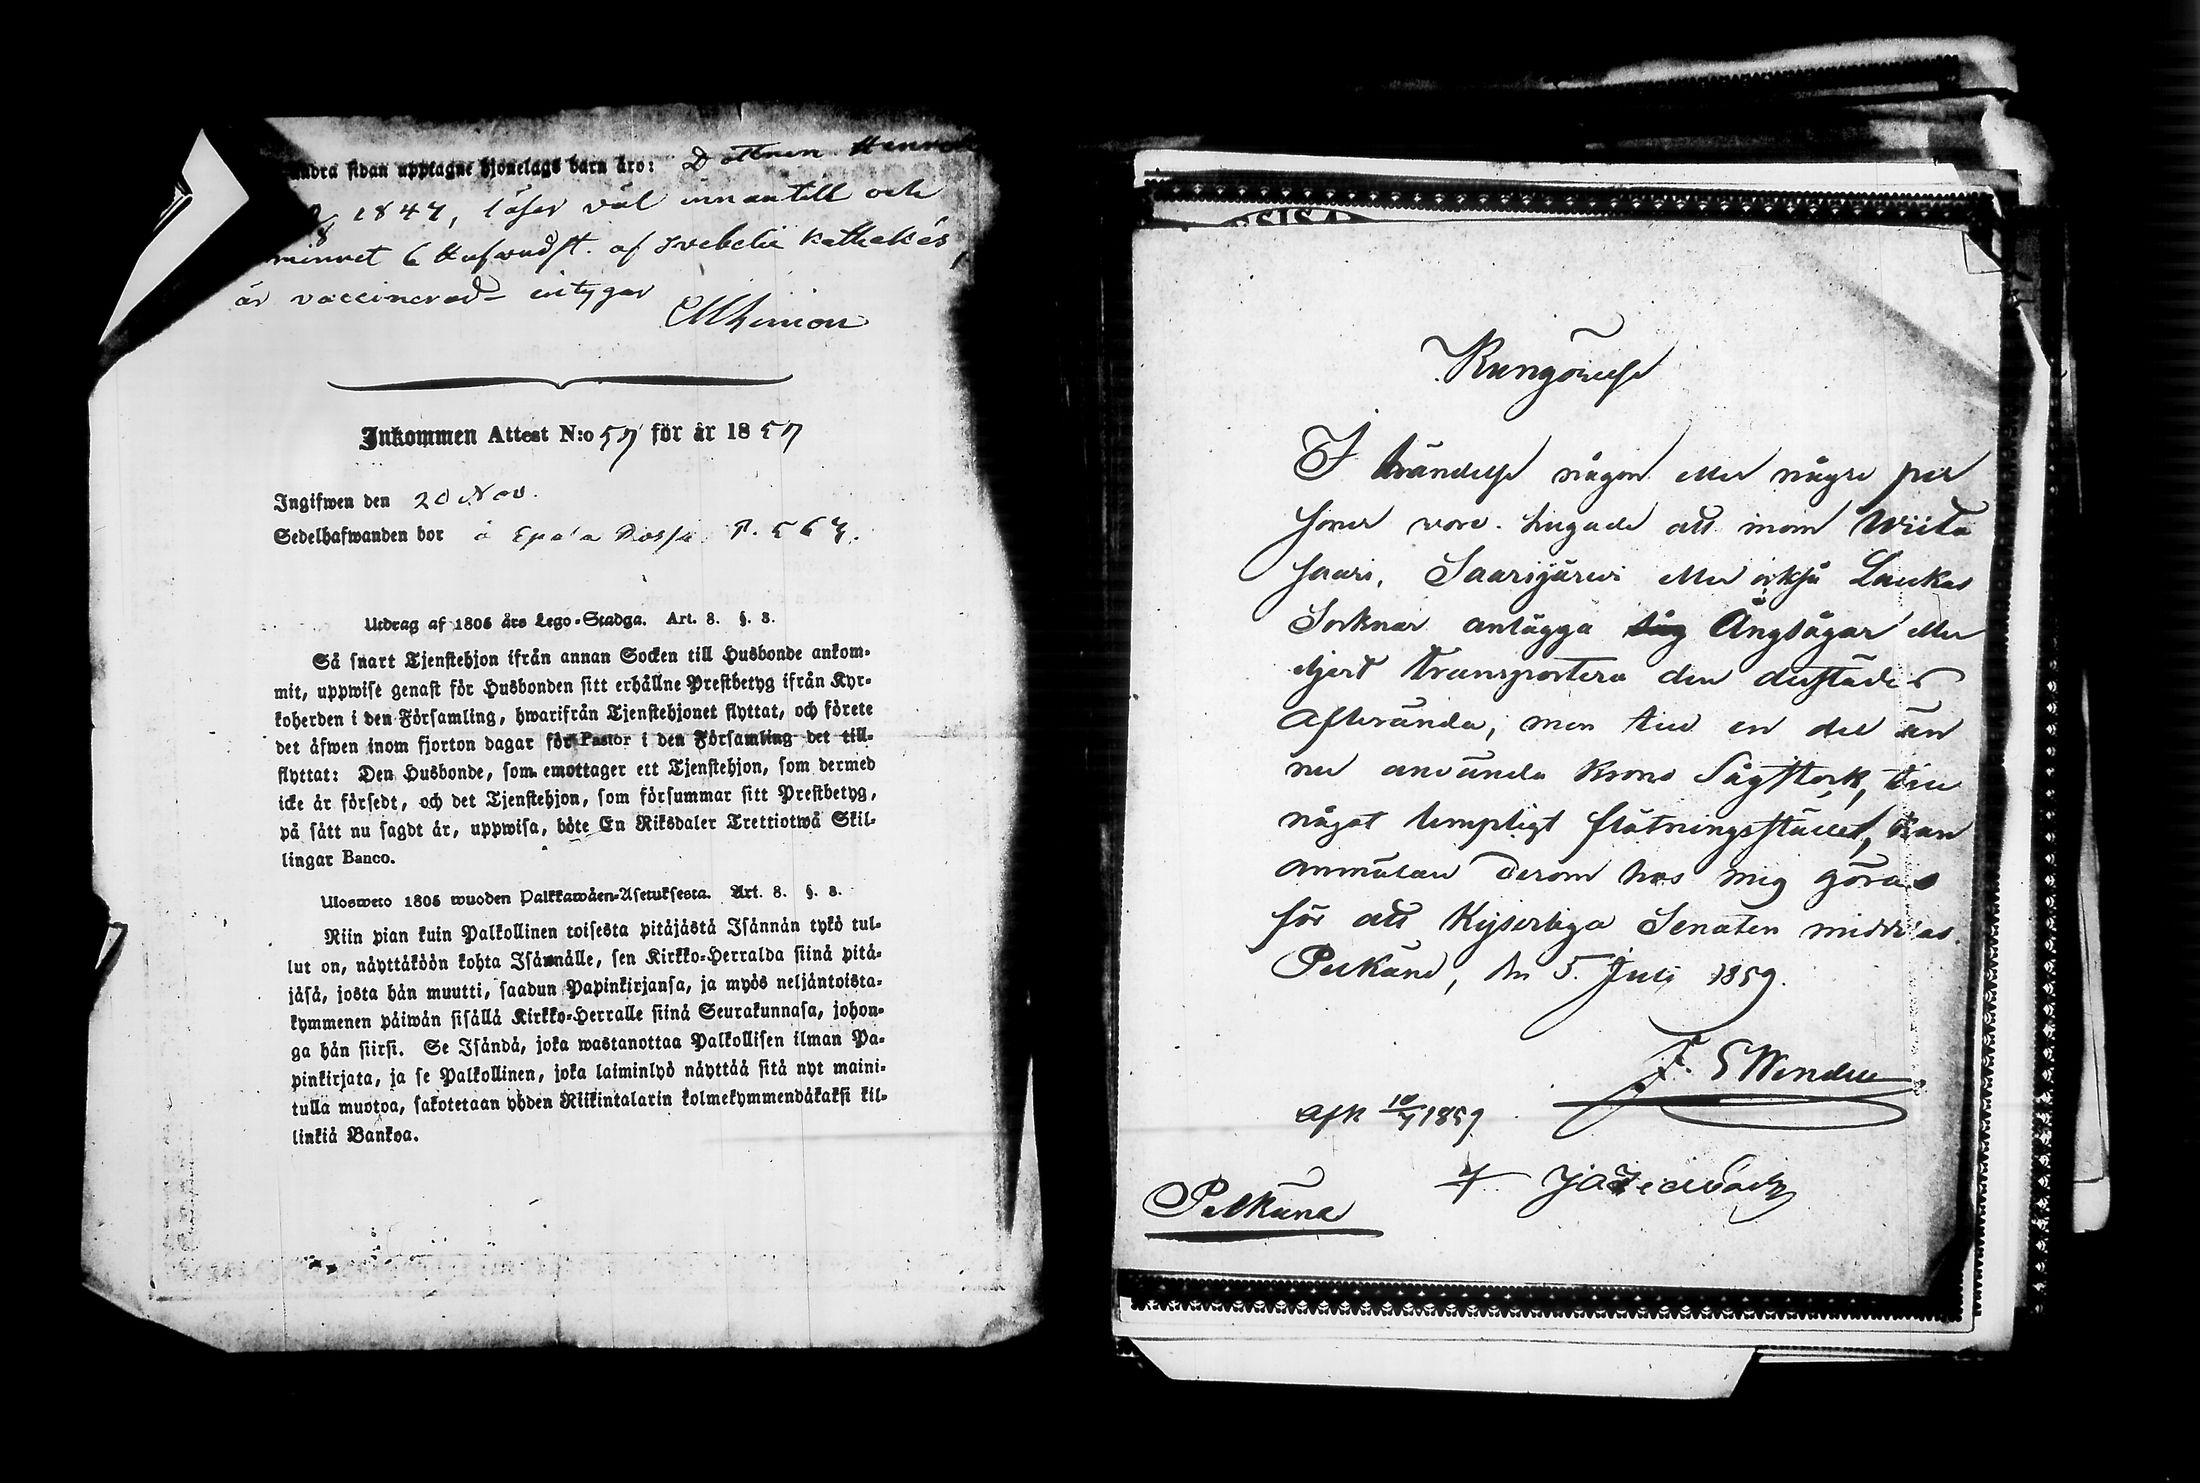 andra sidan upptagne hjonelags barn äro: Dottren
1847, läser väl innantill och
minnet 6 Hufvudst. af Svebelii Kathekes,
är vaccinerad intygar
Inkommen Attest N:o 57 för år 1857
Ingifwen den 20 Nov.
Sedelhafwanden bor å p. 567.
Utdrag af 1805 års Lego-Stadga. Art. 8. §. 3.
Så snart Tjenstehjon ifrån annan Socken till Husbonde ankom-
mit, uppwise genast för Husbonden sitt erhållne Prestbetyg ifrån Kyr-
koherden i den Församling, hwarifrån Tjenstehjonet flyttat, och förete
det äfwen inom fjorton dagar för Pastor i den Församling det till-
flyttat: Den Husbonde, som emottager ett Tjenstehjon, som dermed
icke är försedt, och det Tjenstehjon, som försummar sitt Prestbetyg,
på sätt nu sagdt är, uppwisa, böte En Riksdaler Trettiotwå Skil-
lingar Banco.
Ulosweto 1805 wuoden Palkkawäen-Asetuksesta. Art. 8. §. 3.
Niin pian kuin Palkollinen toisesta pitäjästä Isännän tykö tul-
lut on, näyttäköön kohta Isännälle, sen Kirkko-Herralda siinä pitä-
jäsä, josta hän muutti, saadun Papinkirjansa, ja myös neljäntoista-
kymmenen päiwän sisällä Kirkko-Herralle siinä Seurakunnasa, johon-
ga hän siirsi. Se Isändä, joka wastanottaa Palkollisen ilman Pa-
pinkirjata, ja se Palkollinen, joka laiminlyö näyttää sitä nyt maini-
tulla muotoa, sakotetaan yhden Riikintalarin kolmekymmendäkaksi kil-
linkiä Bankoa.
Kungörelse
I händelse någon eller någre per
soner vore hugade att inom Wiita
saari, Saarijärvi eller också Laukas
Socknar anlägga såg Ångsågar eller
eljest transportera den derstädes
afverkade, men till en del än
nu använda Krono Sågstock, till
något lämpligt flötningsställe, kan
anmälan derom hos mig göras
för att Kejserliga Senaten meddelas.
Pelkäne, den 5 Juli 1859.
Afk 10/7 1859
Pelkäne